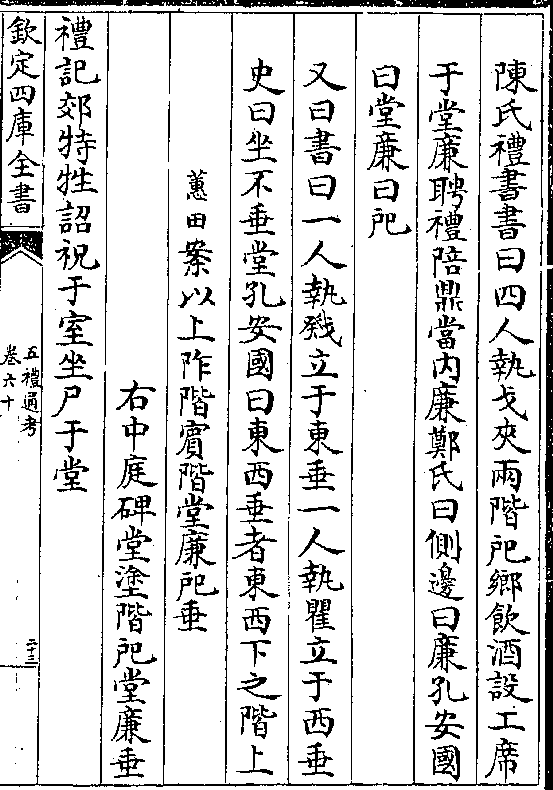 陳氏禮書書曰四人執戈夾兩階戺鄉飲酒設工席
于堂廉聘禮陪鼎當内廉鄭氏曰側邊曰廉孔安國
曰堂廉曰戺
又曰書曰一人執戣立于東垂一人執瞿立于西垂
史曰坐不垂堂孔安國曰東西垂者東西下之階上
蕙田案以上阼階賓階堂廉戺垂
右中庭碑堂塗階戺堂廉垂
禮記郊特牲詔祝于室坐尸于堂
欽定四庫全書
五禮通考
卷六十
二十三